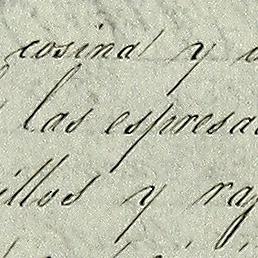 cosina y
las espresa
illos y ra